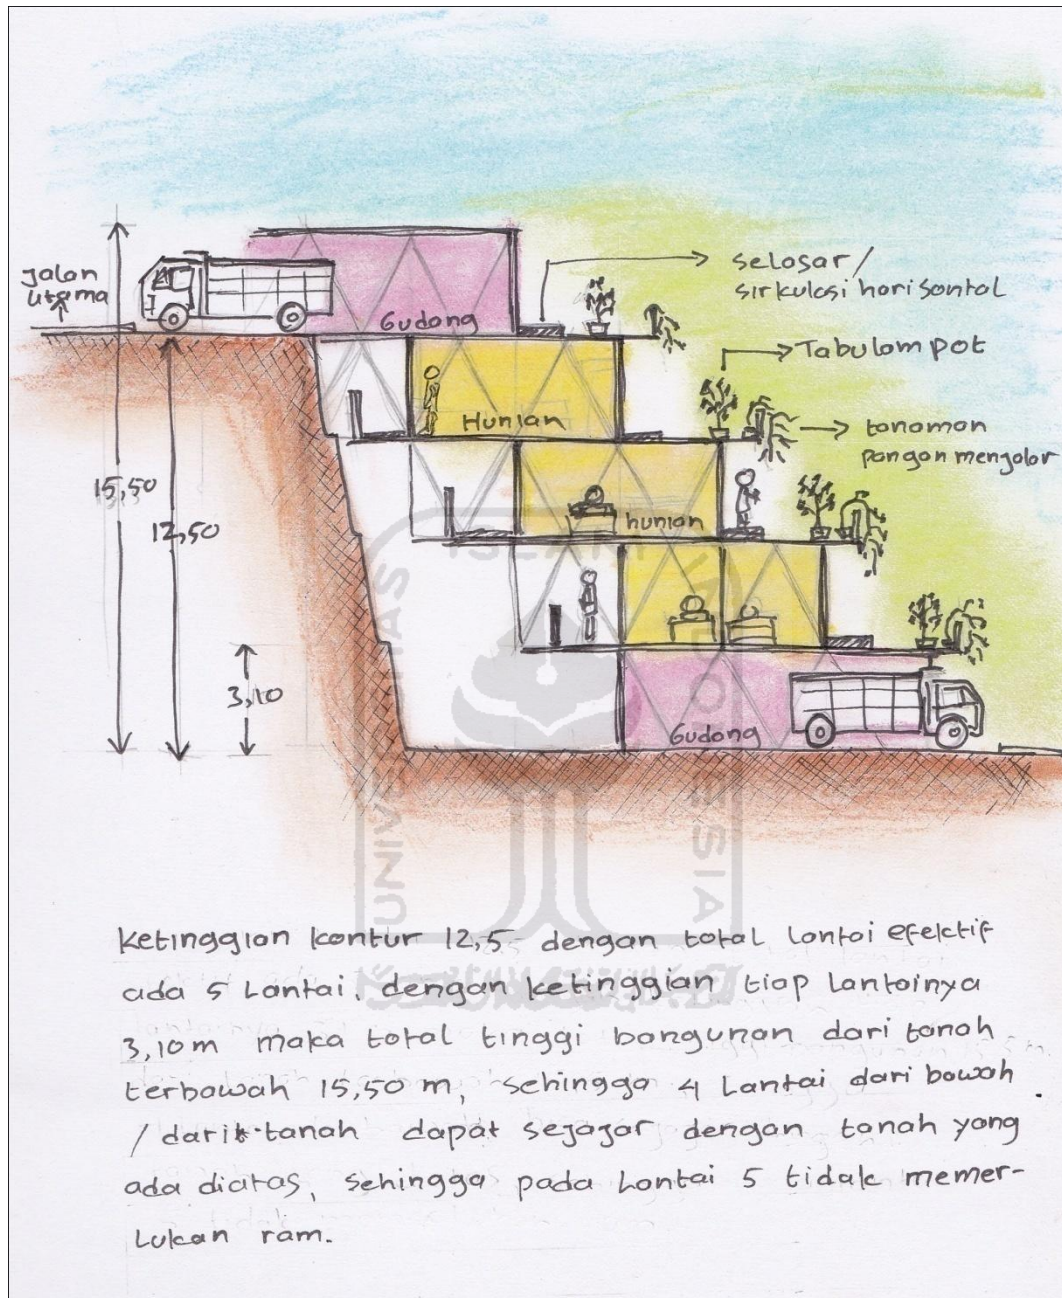 Jalan
utama
Gudang
selasar/
sirkulasi horisontal
Tabulampot
Hunian
tanaman
pangan mengalar
15,50
12,50
hunian
3,10
Gudang
UNIVERSITAS
ISLAM
INDONESIA
Ketinggian kontur 12,5 dengan total lantai efektif
ada 5 Lantai, dengan ketinggian tiap lantainya
3,10 m maka total tinggi bangunan dari tanah
terbawah 15,50 m, sehingga 4 Lantai dari bawah
/ dari tanah dapat sejajar dengan tanah yang
ada diatas, sehingga pada Lantai 5 tidak memer-
lukan ram.